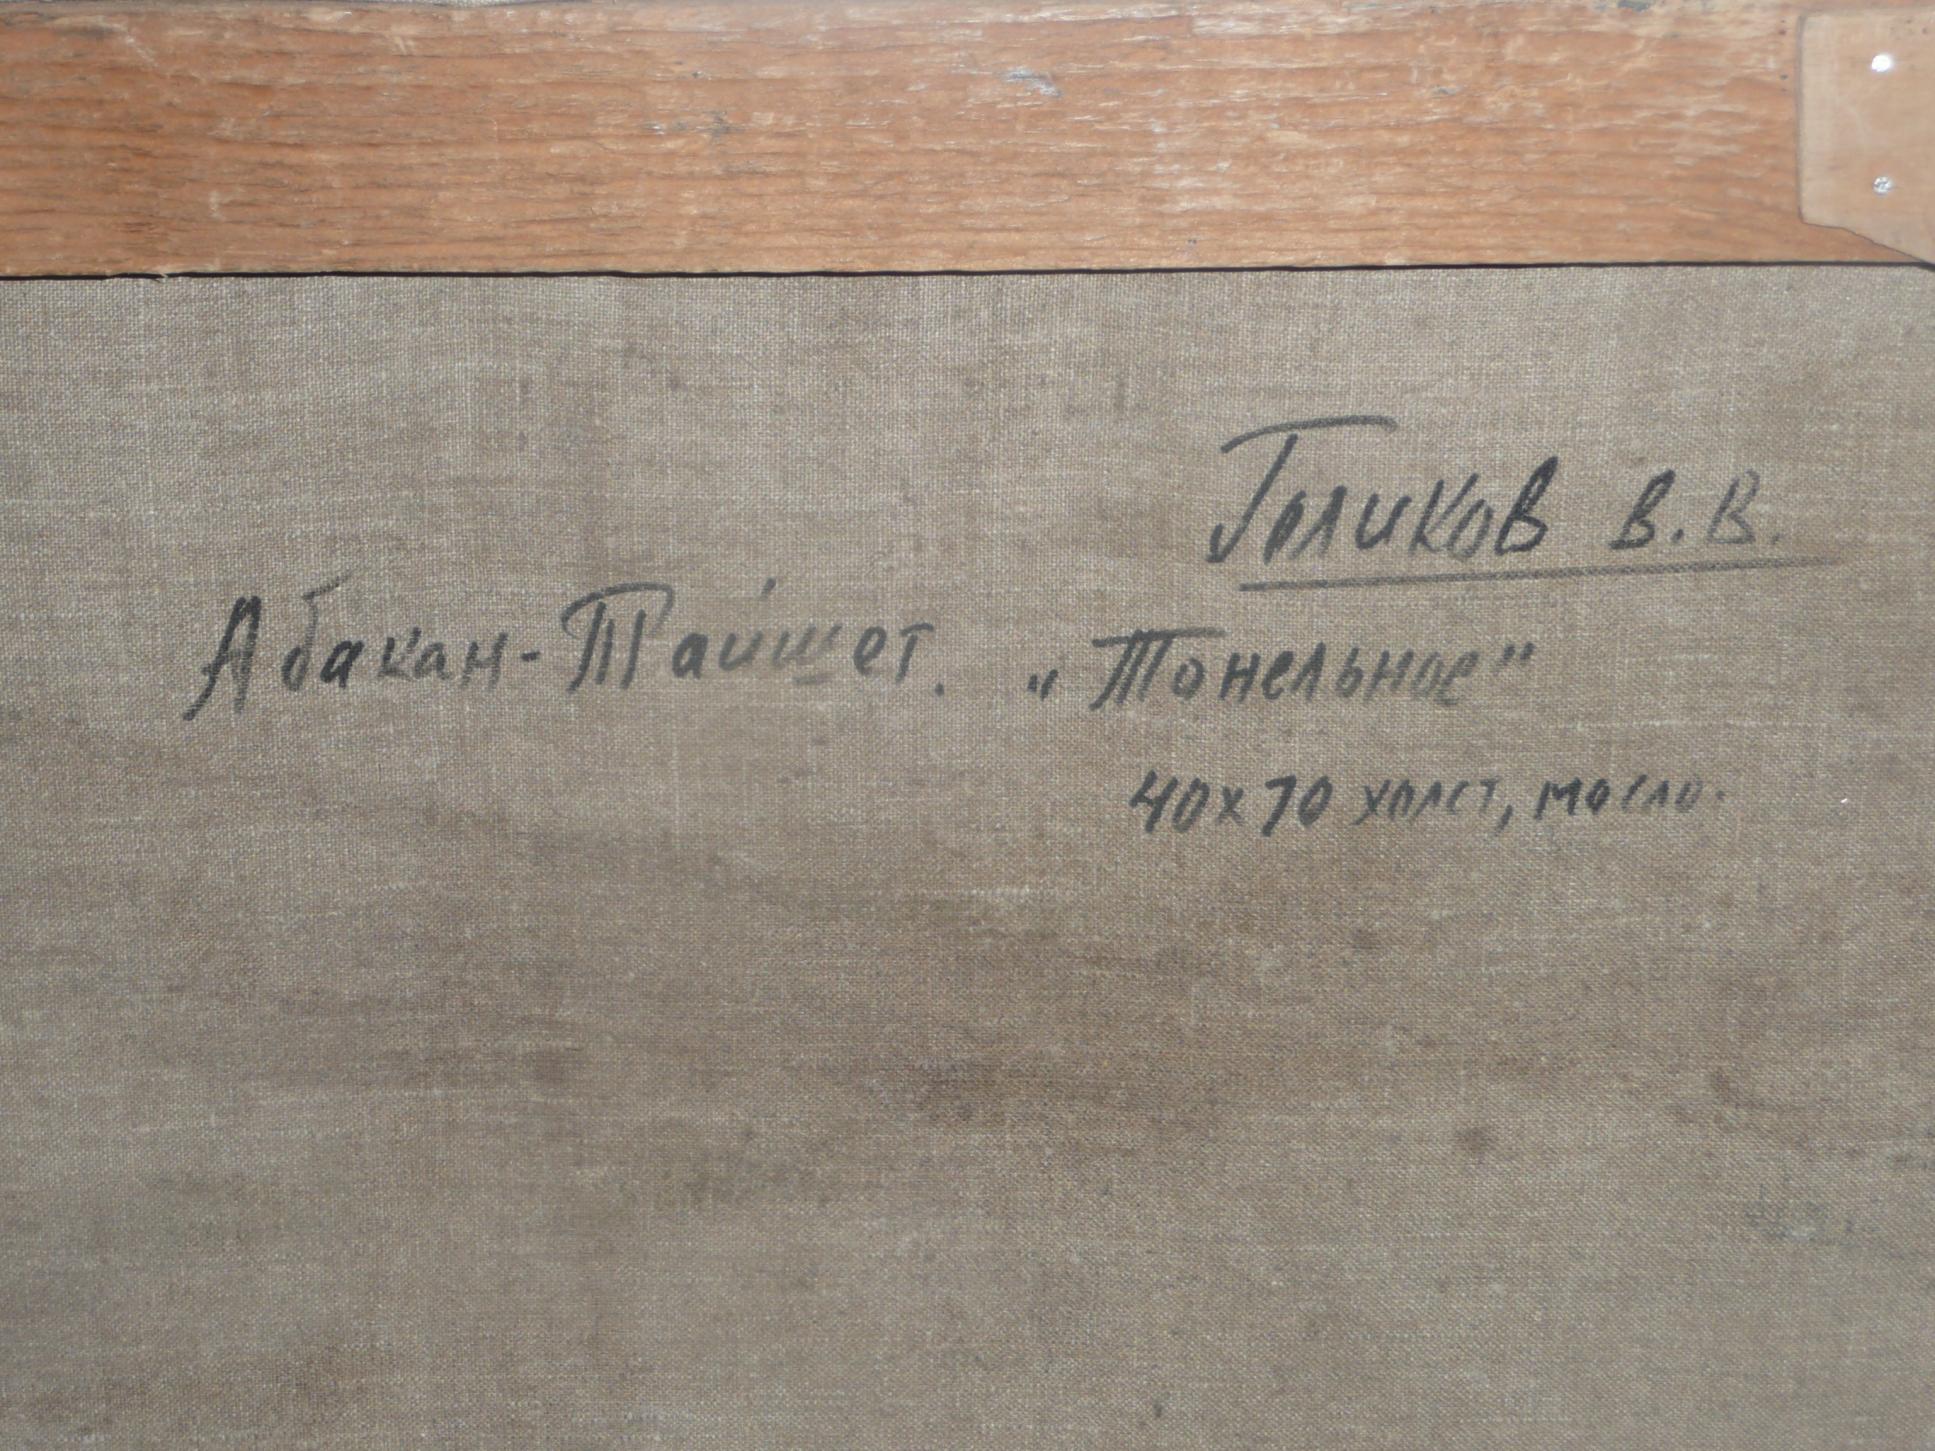 Голиков В.В.
Абакан-Тайшет. „Тонельное"
40х70 холст, масло.